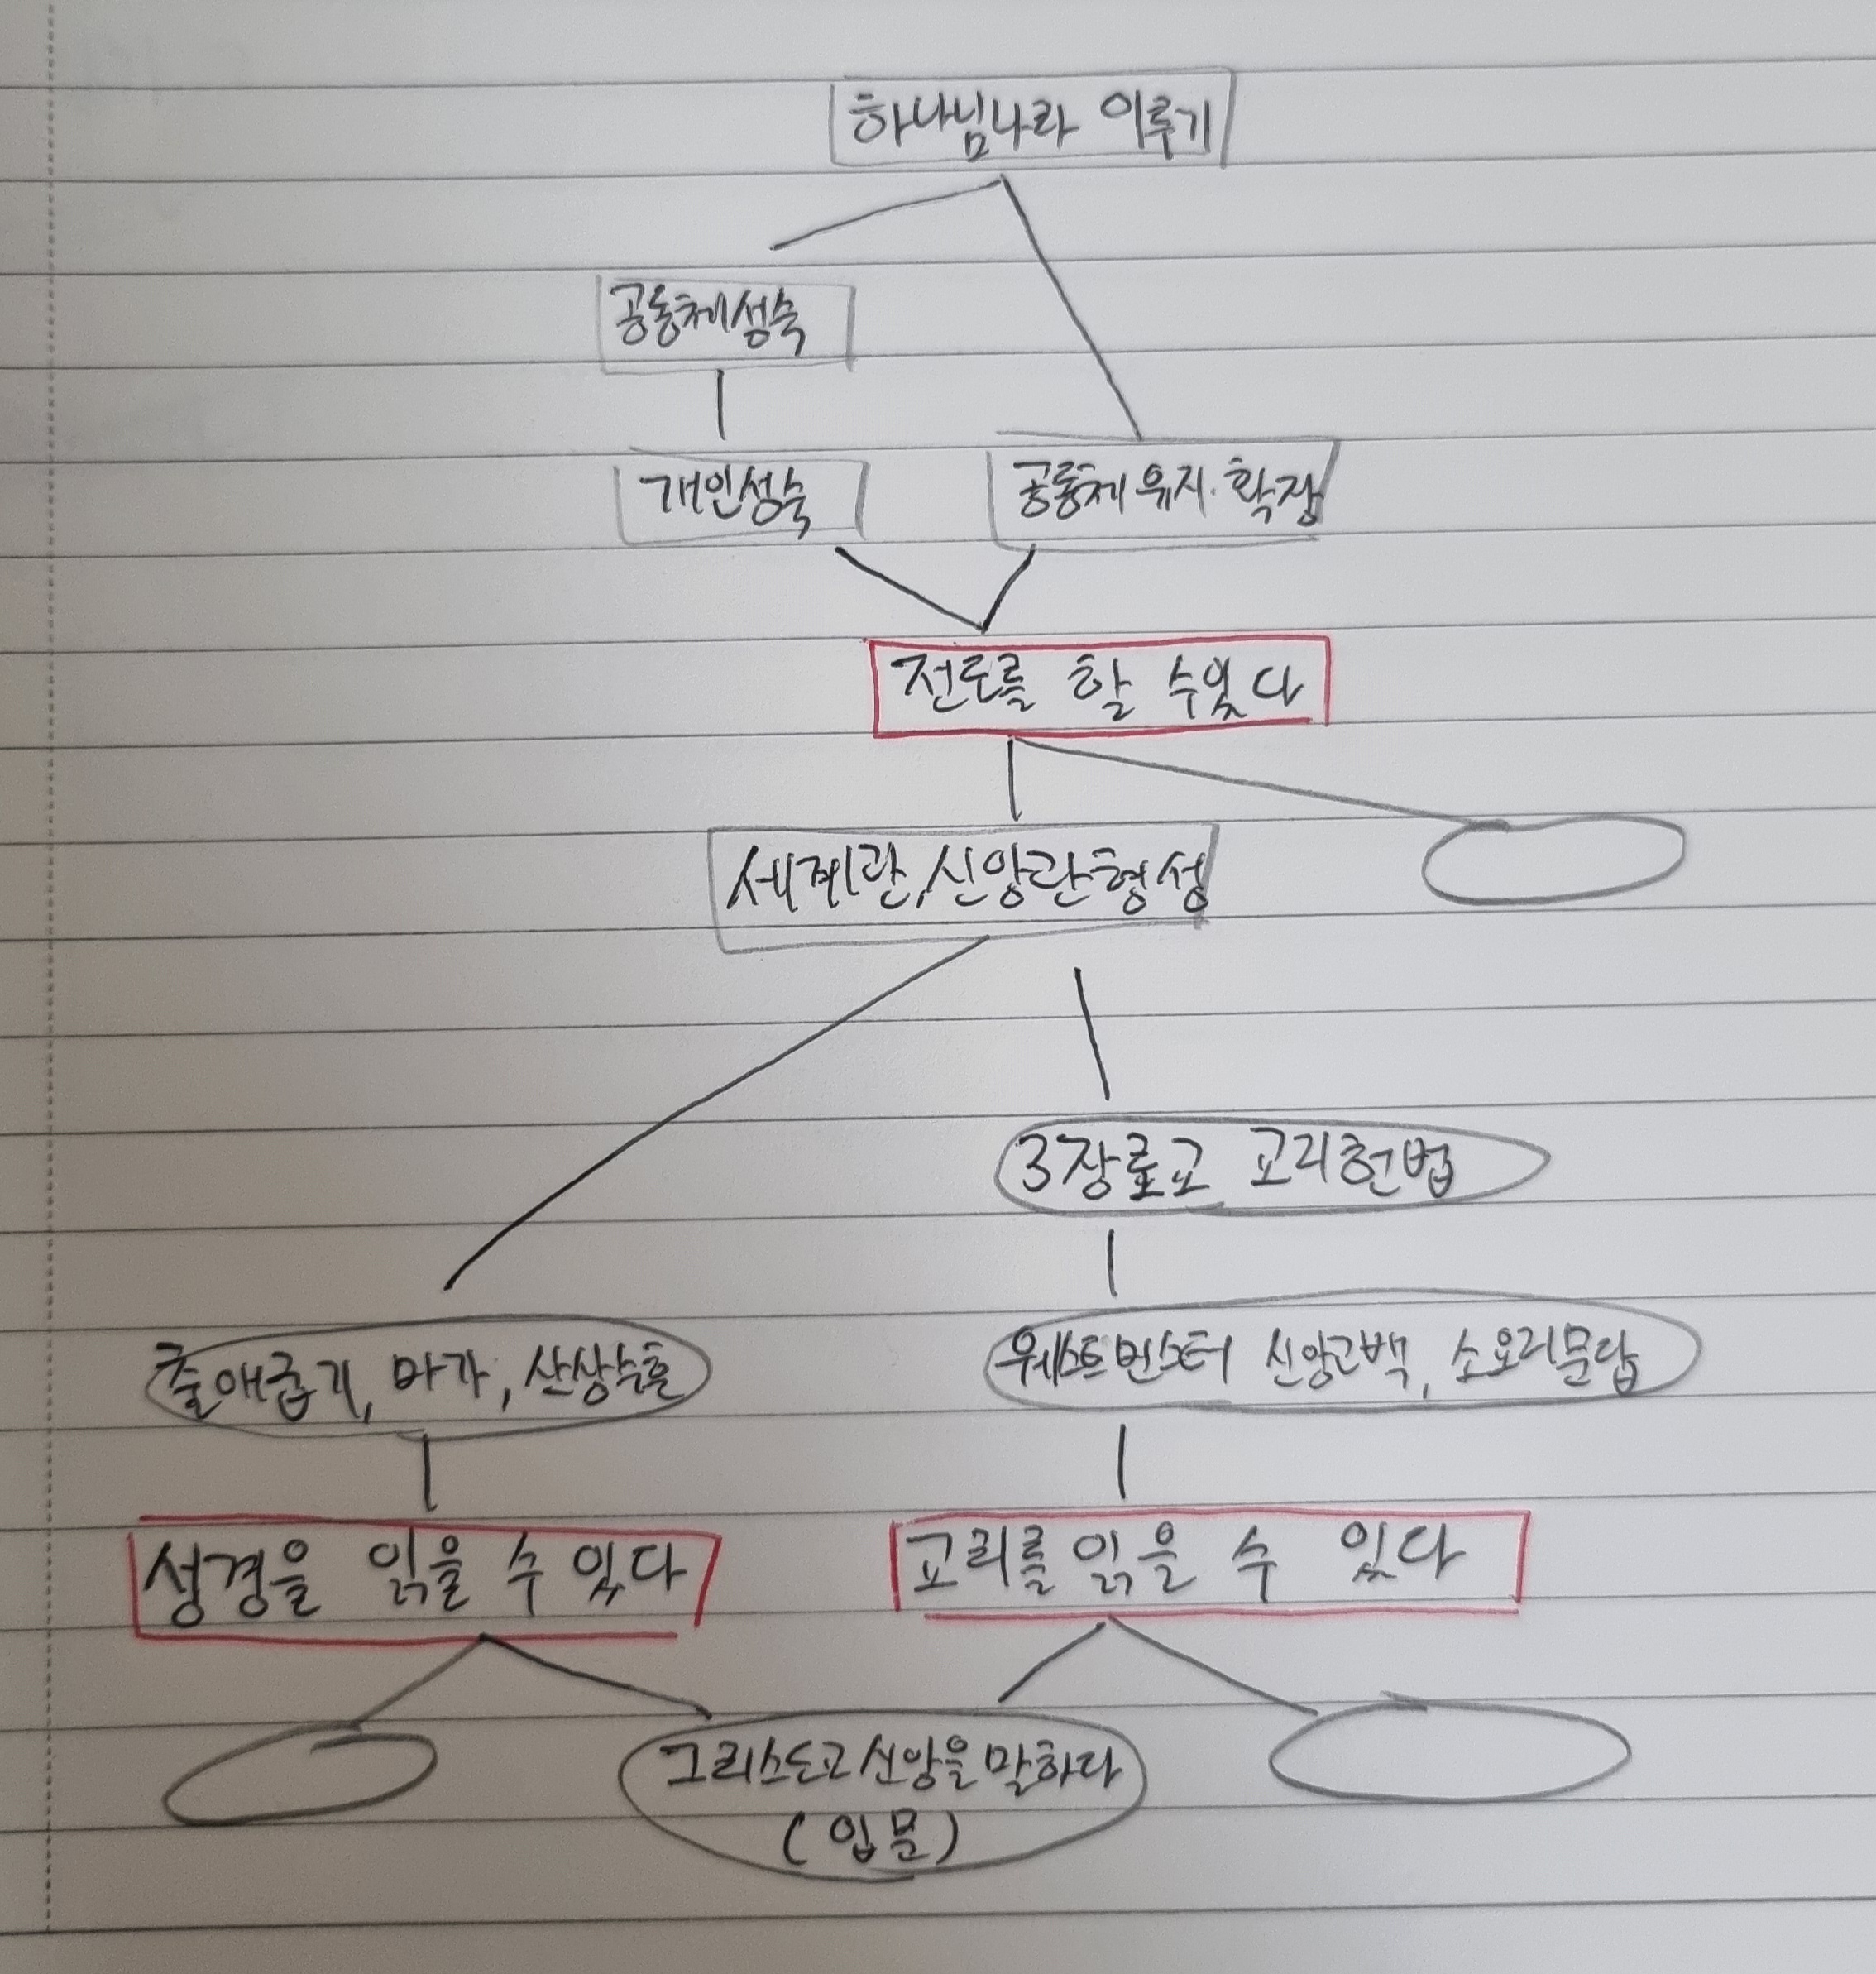 하나님나라 이루기
공동체성숙
개인성숙
공동체 유지·확장
전도를 할 수있다
세계관, 신앙관형성
3장로교 교리헌법
출애굽기, 마가, 산상수훈
웨스트민스터 신앙고백, 소요리문답
성경을 읽을 수 있다
교리를 읽을 수 있다
그리스도교 신앙을 말하다
(입문)